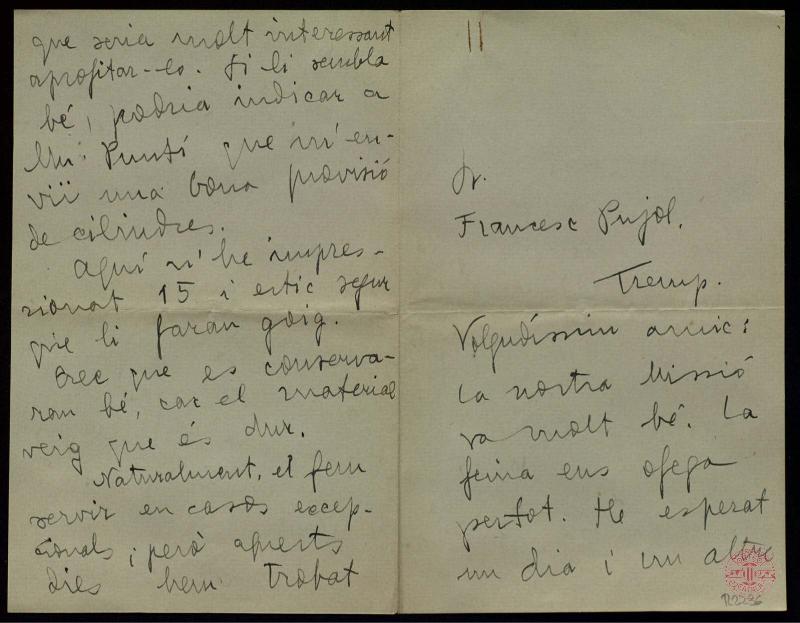 que seria molt interessant
aprofitar-lo. Si li sembla
bé, podria indicar a
Mn. Puntí que m'en-
vii una bona provisió
de cilindres.
Aquí n'he impres-
sionat 15 i estic segur
que li faran goig.
Crec que es conserva-
ran bé, car el material
veig que és dur.
Naturalment, el fem
servir en casos excep-
cionals; però aquests
dies hem trobat
Sr.
Francesc Pujol.
Tremp.
Volgudíssim amic:
La nostra Missió
va molt bé. La
feina ens ofega
pertot. He esperat
un dia i un altre